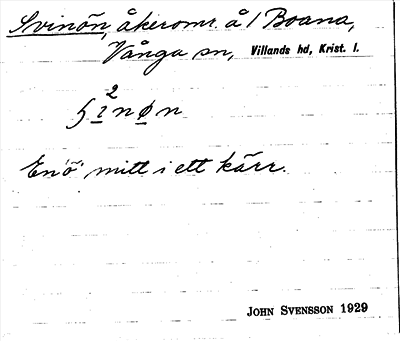 Svinön, åkeromr. å 1 Boana,
Vånga sn, Villands hd, Krist. l.
2
En "ö" mitt i ett kärr.
JOHN SVENSSON 1929